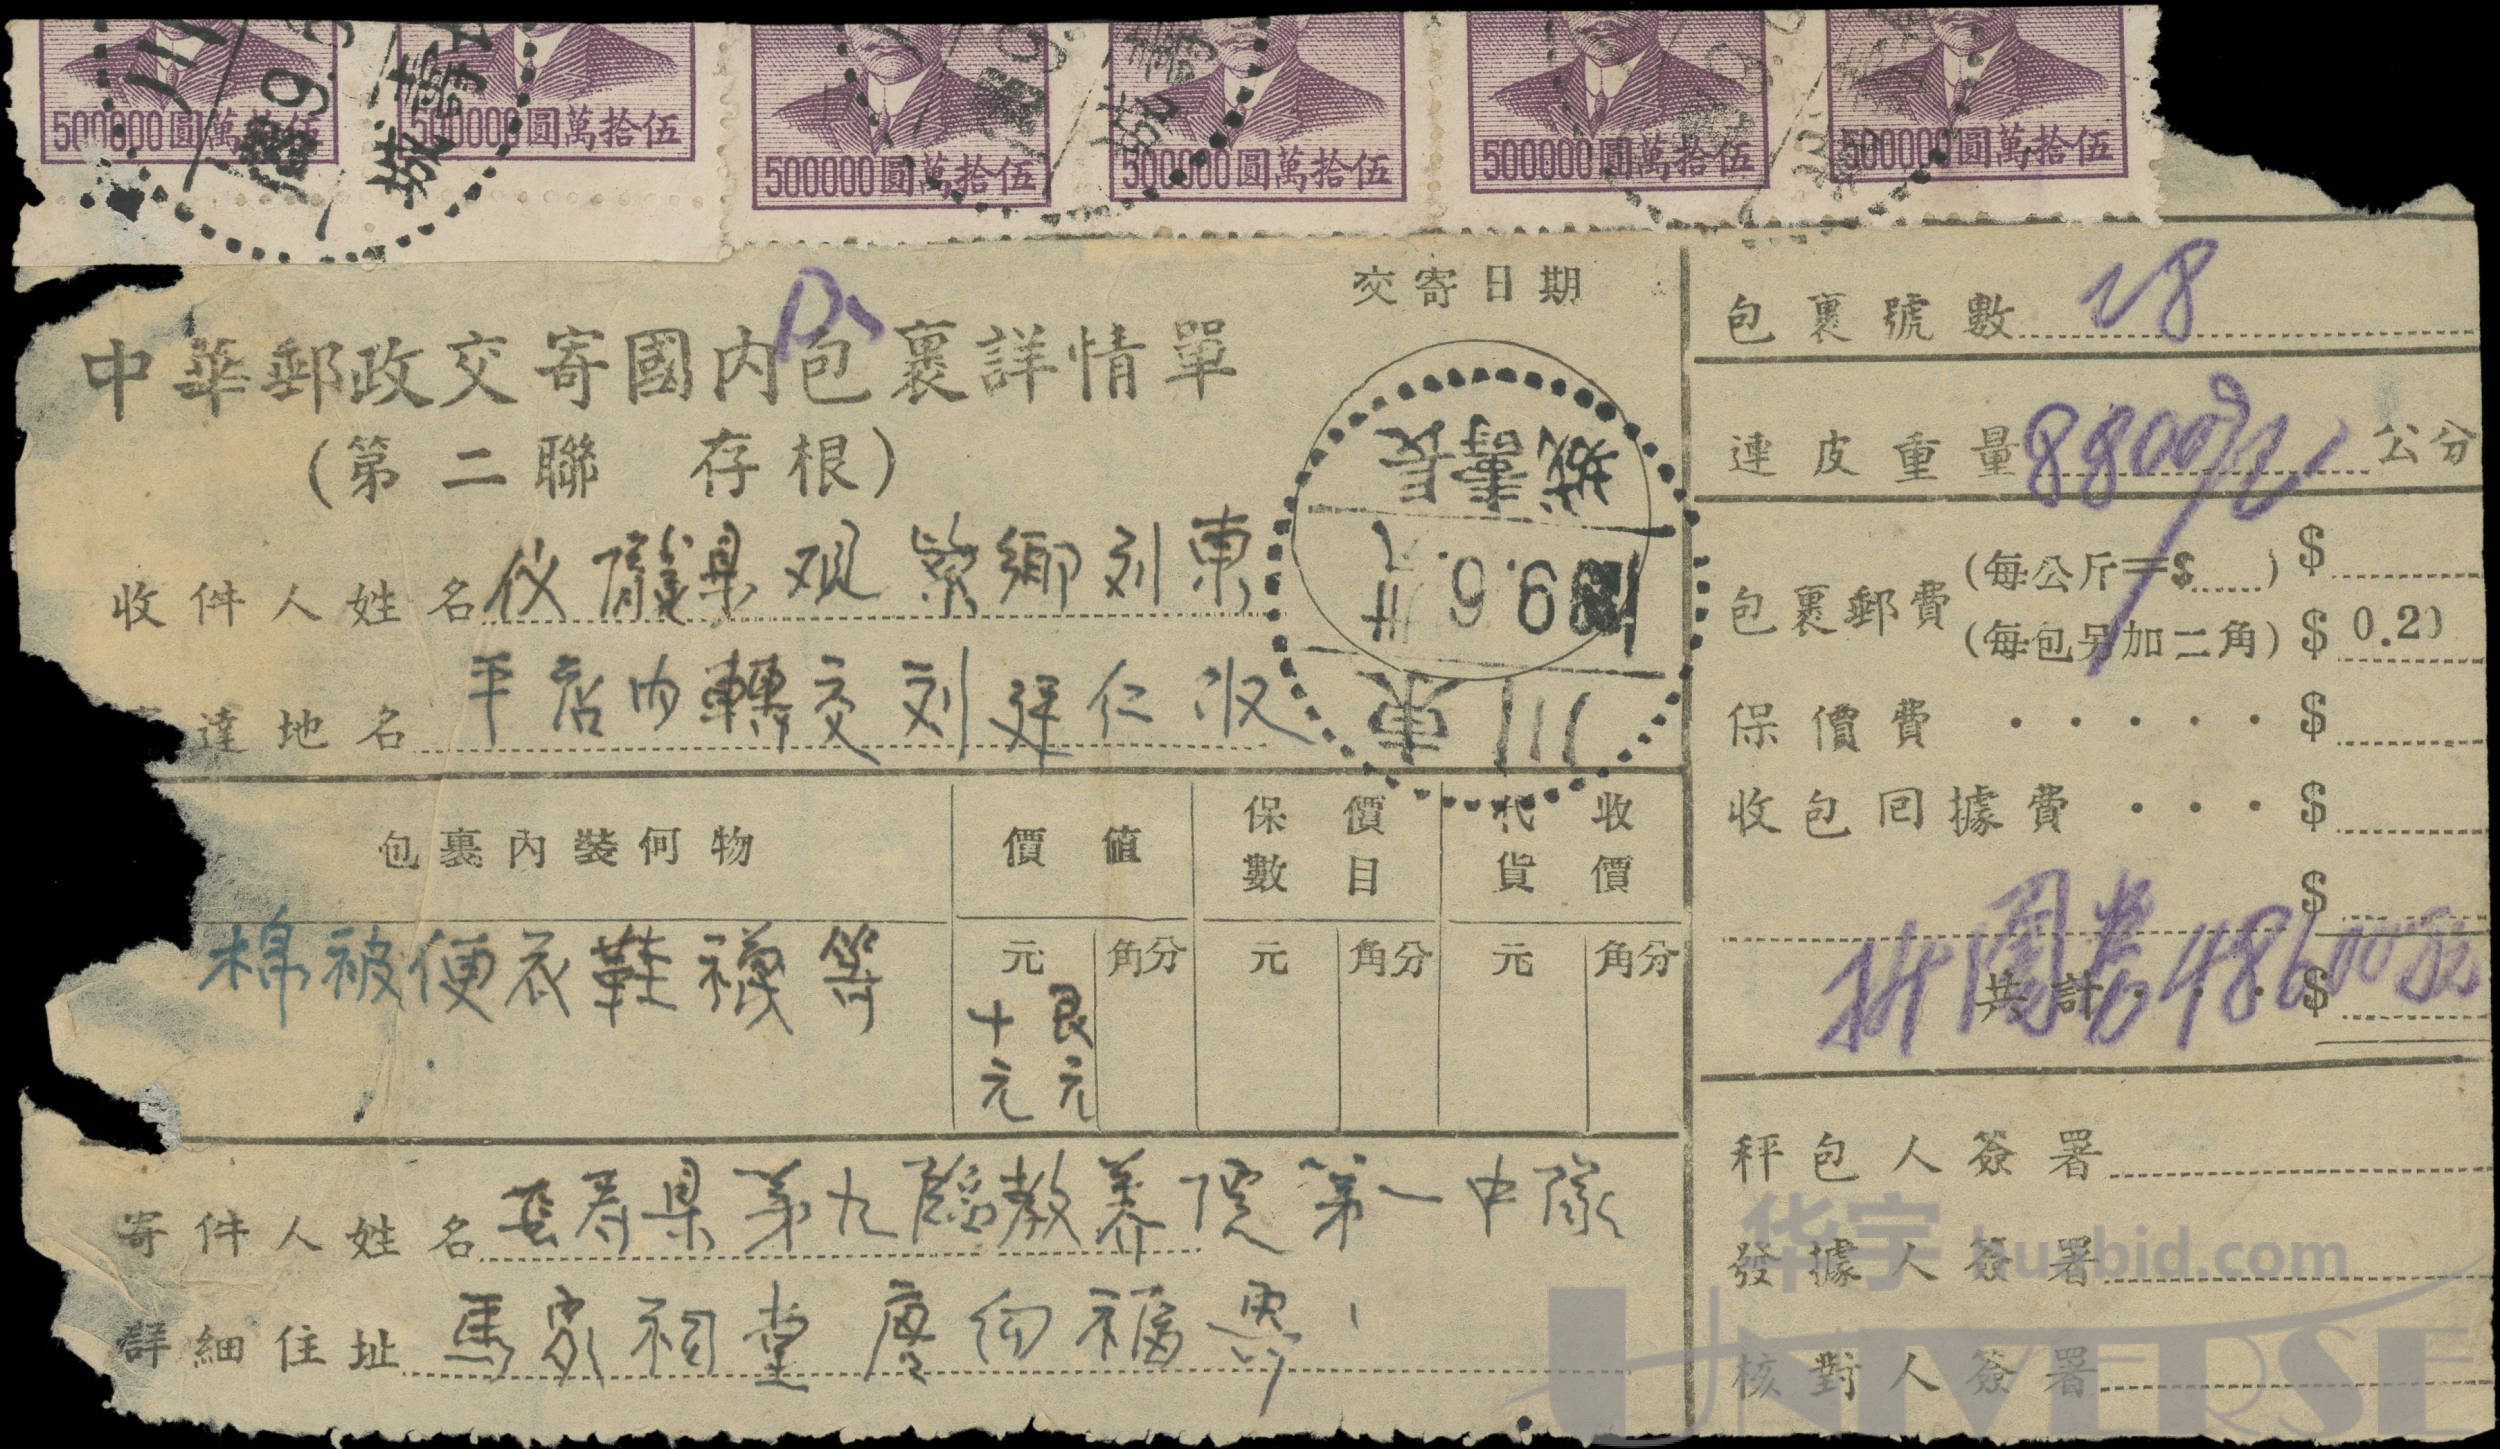 500000圓萬拾伍
500000圓萬拾伍
500000圓萬拾伍
500000圓萬拾伍
500000圓萬拾伍
500000圓萬拾伍
交寄日期
中華郵政交寄國內包裹詳情單
(第二聯 存根)
收件人姓名 仪隴县观紫鄉刘東
達地名 平店内轉交刘 仁收
長壽
川東
包裹內裝何物
價值
保價數目
代收貨價
元 角分 元 角分 元 角分
棉被便衣鞋襪等
艮元
十元
寄件人姓名 長寿县第九臨教养院第一中隊
詳細住址 馬家祠堂
包裹號數 28
連皮重量 8800 公分
包裹郵費 (每公斤=$ ) $
(每包另加二角) $ 0.20
保價費 · · · · · $
收包回據費 · · · $
$
共計 · · · $
秤包人簽署
發據人簽署
核對人簽署
华宇 huabid.com
UNIVERSE